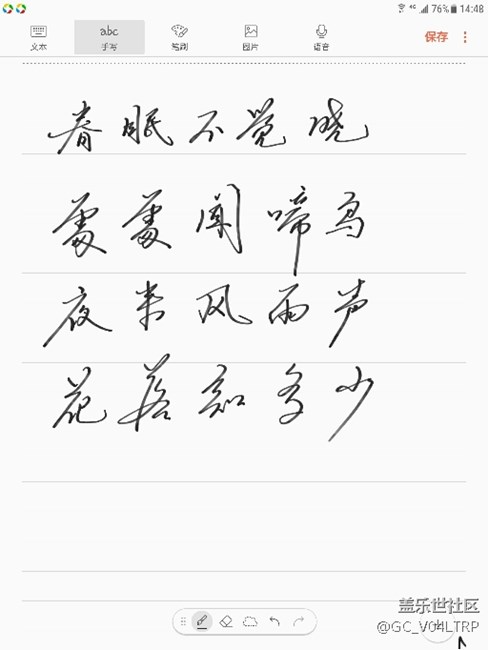 76% 14:48
文本 abc 手写 笔刷 图片 语音 保存
春眠不觉晓
处处闻啼鸟
夜来风雨声
花落知多少
盖乐世社区
@GC_V04LTRP